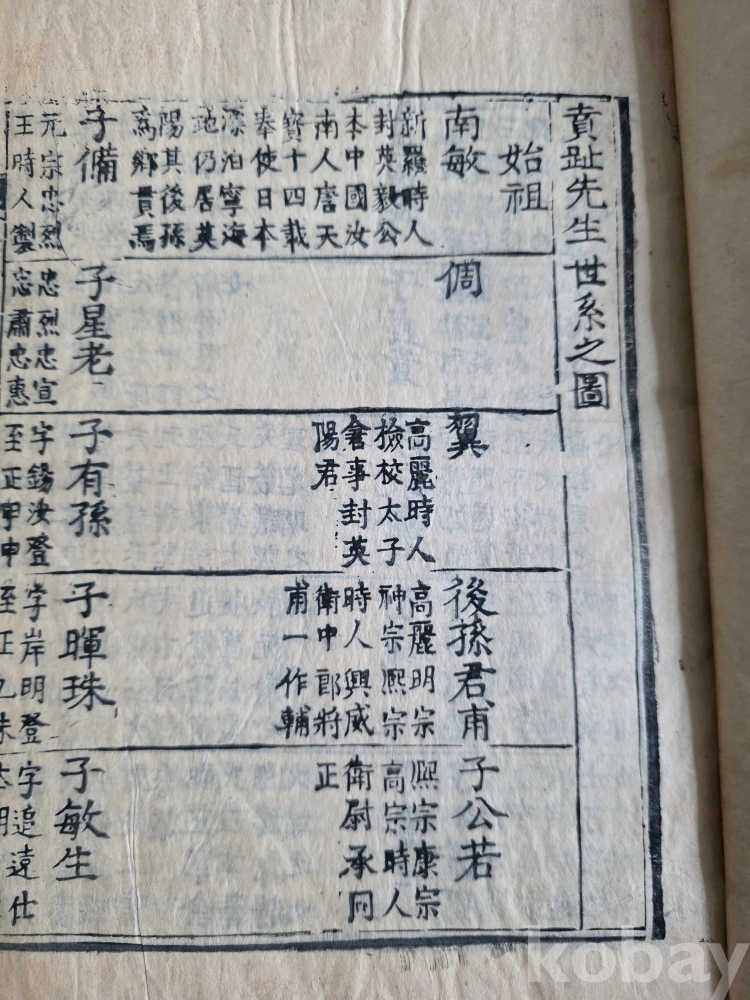 賁趾先生世系之圖
始祖
南敏
新羅時人
封英毅公
本中國汝
南人唐天
寶十四載
奉使日本
漂泊寧海
地仍居英
陽其後孫
爲鄉貫焉
倜
翼
高麗時人
檢校太子
詹事封英
陽君
後孫君甫
高麗明宗
神宗熙宗
時人興威
衛中郎將
甫一作輔
子公若
熙宗康宗
高宗時人
衛尉承同
正
子備
元宗忠烈
王時人製
子星老
忠烈忠宣
忠肅忠惠
子有孫
字錫汝登
至正甲申
子暉珠
字岸明登
至正
子敏生
字追遠仕
kobay